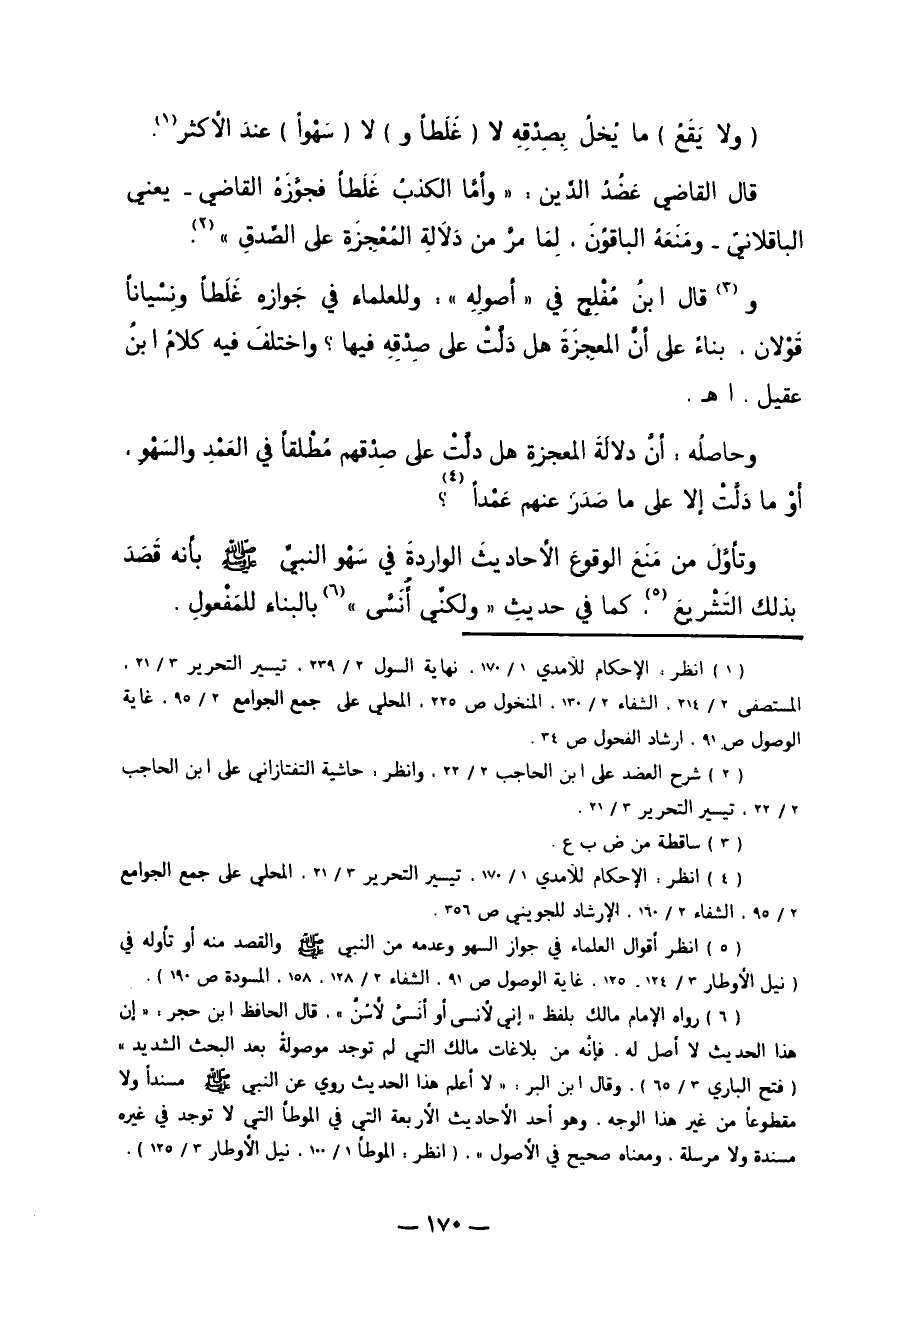 ( ولا يَقَعُ ) ما يُخلُ بِصِدْقِهِ لا ( غَلَطاً و ) لا ( سَهْواً ) عندَ الأكثر<sup>(١)</sup>.
قال القاضي عَضُدُ الدِّين : « وأمَّا الكذبُ غَلَطاً فجوَّزَهُ القاضي ـ يعني
الباقلانيّ ـ ومَنَعَهُ الباقونَ ، لِمَا مرَّ من دَلَالَةِ المُعْجِزَة على الصِّدقِ »<sup>(٢)</sup>.
و<sup>(٣)</sup> قال ابنُ مُفْلِحٍ في « أصولِهِ » : وللعلماء في جَوازِهِ غَلَطاً ونِسْياناً
قَوْلان ، بناءً على أنَّ المعجِزَةَ هل دَلَّتْ على صِدْقِهِ فيها ؟ واختلفَ فيه كلامُ ابنُ
عقيل . ا هـ .
وحاصلُه : أنَّ دلالةَ المعجزةِ هل دلَّتْ على صِدْقهم مُطْلقاً في العَمْدِ والسَهْوِ ،
أوْ ما دَلَّتْ إلا على ما صَدَرَ عنهم عَمْداً<sup>(٤)</sup> ؟
وتأوَّلَ من مَنَعَ الوقوعَ الأحاديثَ الواردةَ في سَهْو النبيِّ ﷺ بأنه قَصَدَ
بذلك التَشْريعَ<sup>(٥)</sup>. كما في حديثِ « ولكنِّي أُنَسَّى »<sup>(٦)</sup> بالبناء للمَفْعولِ .
( ١ ) انظر : الإحكام للآمدي ١ / ١٧٠ ، نهاية السول ٢ / ٢٣٩ ، تيسير التحرير ٣ / ٢١ ،
المستصفى ٢ / ٢١٤ ، الشفاء ٢ / ١٣٠ ، المنخول ص ٢٢٥ ، المحلي على جمع الجوامع ٢ / ٩٥ ، غاية
الوصول ص ٩١ ، ارشاد الفحول ص ٣٤ .
( ٢ ) شرح العضد على ابن الحاجب ٢ / ٢٢ ، وانظر : حاشية التفتازاني على ابن الحاجب
٢ / ٢٢ ، تيسير التحرير ٣ / ٢١ .
( ٣ ) ساقطة من ض ب ع .
( ٤ ) انظر : الإحكام للآمدي ١ / ١٧٠ ، تيسير التحرير ٣ / ٢١ ، المحلي على جمع الجوامع
٢ / ٩٥ ، الشفاء ٢ / ١٦٠ ، الإرشاد للجويني ص ٣٥٦ .
( ٥ ) انظر أقوال العلماء في جواز السهو وعدمه من النبي ﷺ والقصد منه أو تأوله في
( نيل الأوطار ٣ / ١٢٤ ـ ١٢٥ ، غاية الوصول ص ٩١ ، الشفاء ٢ / ١٢٨ ، ١٥٨ ، المسودة ص ١٩٠ ) .
( ٦ ) رواه الإمام مالك بلفظ « إني لأنسى أو أنسىّ لأسُنّ » ، قال الحافظ ابن حجر : « إن
هذا الحديث لا أصل له ، فإنّه من بلاغات مالك التي لم توجد موصولةً بعد البحث الشديد »
( فتح الباري ٣ / ٦٥ ) . وقال ابن البر : « لا أعلم هذا الحديث روي عن النبي ﷺ مسنداً ولا
مقطوعاً من غير هذا الوجه ، وهو أحد الأحاديث الأربعة التي في الموطأ التي لا توجد في غيره
مسندة ولا مرسلة ، ومعناه صحيح في الأصول » . ( انظر : الموطأ ١ / ١٠٠ ، نيل الأوطار ٣ / ١٢٥ ) .
— ١٧٠ —